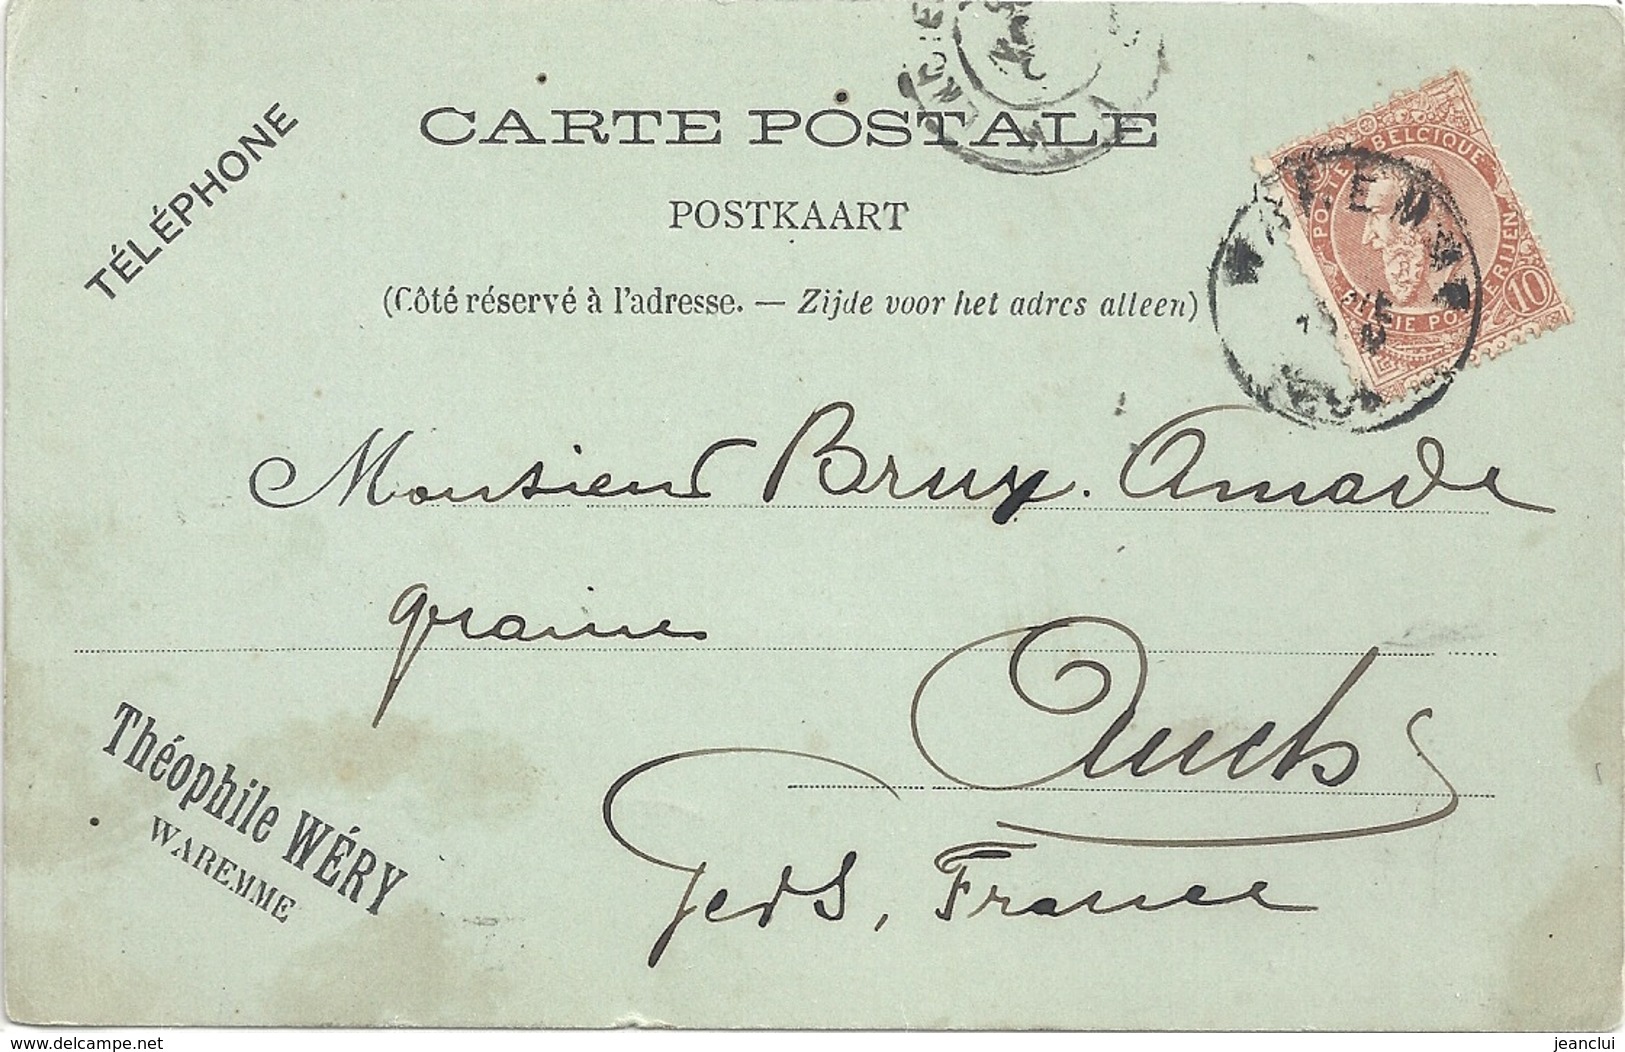 TÉLÉPHONE
CARTE POSTALE
POSTKAART
(Côté réservé à l'adresse. — Zijde voor het adres alleen)
POSTES BELGIQUE
BELGIE POSTERIJEN
10
WAREMME
Monsieur Brux. Amade
graines
Auch
Gers, France
Théophile WÉRY
WAREMME
www.delcampe.net
jeanclui